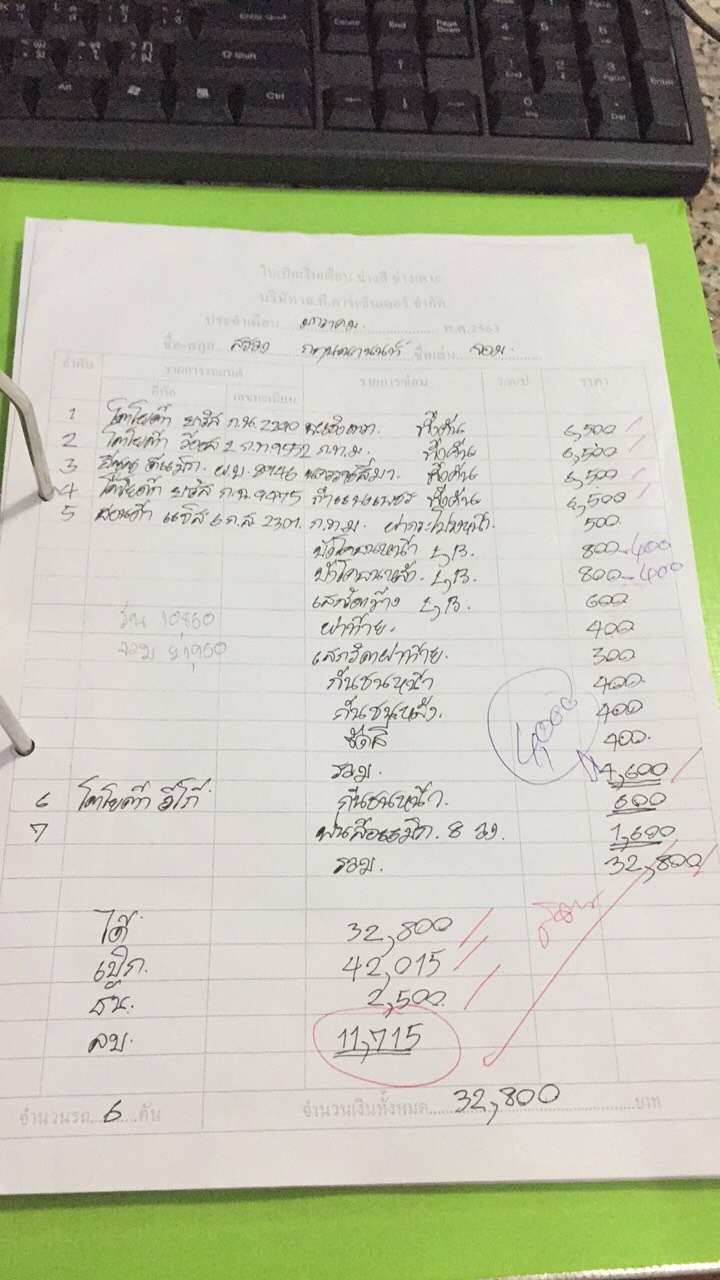 ใบเบิกเงินเดือน ช่างสี ช่างเคาะ
บริษัท เอ.พี.คาร์เซ็นเตอร์ จำกัด
ประจำเดือน มกราคม พ.ศ.2563
ชื่อ-สกุล ชื่อเล่น จอม
ลำดับ รายการรถยนต์ รายการซ่อม ว/ด/ป ราคา
ยี่ห้อ เลขทะเบียน
1 โตโยต้า ยาริส ก.น. 2390 ฉะเชิงเทรา. ทั้งคัน 6,500
2 โตโยต้า วีออส 2 ก.ท. 9452 ก.ท.ม. ทั้งคัน 6,500
3 อีซูซุ ดีแม็ก. ผ.บ. 8746 นครราชสีมา. ทั้งคัน 6,500
4 โตโยต้า ยาริส ก.น. 9775 กำแพงเพชร ทั้งคัน 6,500
5 ฮอนด้า แจ๊ส 6 ก.ส 2301. ก.ท.ม. ฝากระโปรงหน้า. 500
บังโคลนหน้า L,R. 800-400
บังโคลนหลัง. L,R. 800-400
L,R. 600
ฝาท้าย. 400
300
กันชนหน้า 400
กันชนหลัง. 400
ขัดสี 400.
10,850
จอม 21,950
4,000
รวม. 4,600
6 โตโยต้า วีโก้ กันชนหน้า. 600
7 8 วง. 1,600
รวม. 32,800
ได้ 32,800
เบิก. 42,015
2,500.
ลบ. 11,715
จำนวนรถ 6 คัน จำนวนเงินทั้งหมด 32,800 บาท